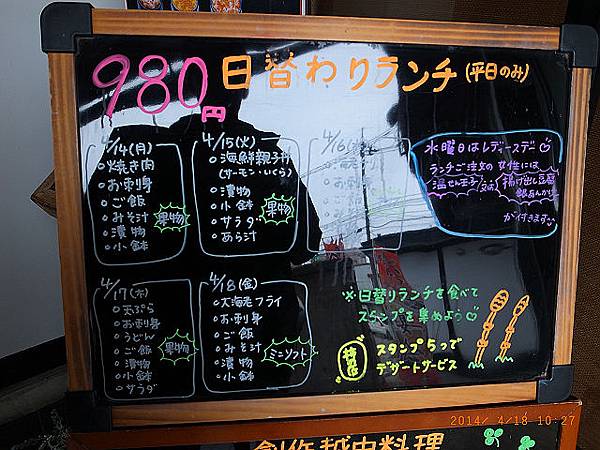 980円 日替わりランチ(平日のみ)
4/14(月)
○焼き肉
○お刺身
○ご飯
○みそ汁
○漬物
○小鉢
果物
4/15(火)
○海鮮親子丼
(サーモン・いくら)
○漬物
○小鉢
○サラダ
○あら汁
果物
4/16
水曜日はレディースデー
ランチご注文の女性には
温せん玉子 又は 揚げ出し豆腐
銀あんかけ
が付きます
4/17(木)
○天ぷら
○お刺身
○うどん
○ご飯
○漬物
○小鉢
○サラダ
果物
4/18(金)
○大海老フライ
○お刺身
○ご飯
○みそ汁
○漬物
○小鉢
ミニソフト
※日替りランチを食べて
スタンプを集めよう
スタンプ5つで
デザートサービス
2014/ 4/18 10:27
創作越中料理